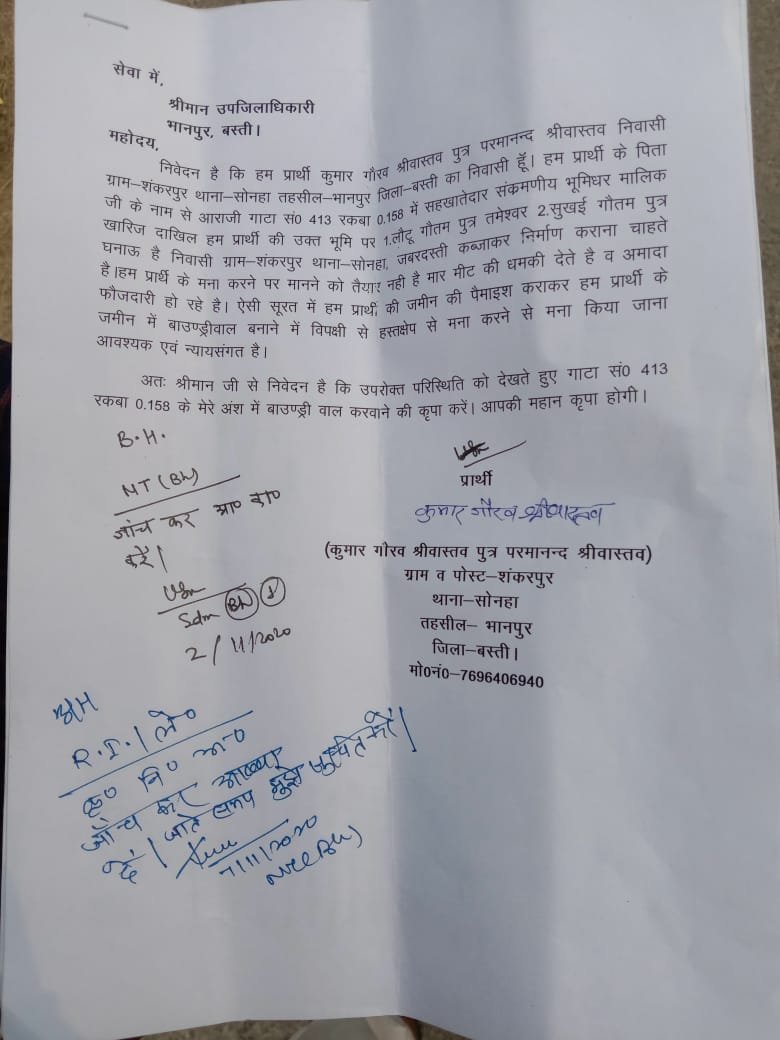 सेवा में,
श्रीमान उपजिलाधिकारी
भानपुर, बस्ती।
महोदय,
निवेदन है कि हम प्रार्थी कुमार गौरव श्रीवास्तव पुत्र परमानन्द श्रीवास्तव निवासी
ग्राम–शंकरपुर थाना–सोनहा तहसील–भानपुर जिला–बस्ती का निवासी हूँ। हम प्रार्थी के पिता
जी के नाम से आराजी गाटा सं0 413 रकबा 0.158 में सहखातेदार संक्रमणीय भूमिधर मालिक
खारिज दाखिल हम प्रार्थी की उक्त भूमि पर 1.लौटू गौतम पुत्र तमेश्वर 2.सुखई गौतम पुत्र
घनाऊ है निवासी ग्राम–शंकरपुर थाना–सोनहा, जबरदस्ती कब्जाकर निर्माण कराना चाहते
है।हम प्रार्थि के मना करने पर मानने को तैयार नही है मार मीट की धमकी देते है व अमादा
फौजदारी हो रहे है। ऐसी सूरत में हम प्रार्थी की जमीन की पैमाइश कराकर हम प्रार्थी के
जमीन में बाउण्ड्रीवाल बनाने में विपक्षी से हस्तक्षेप से मना करने से मना किया जाना
आवश्यक एवं न्यायसंगत है।
अतः श्रीमान जी से निवेदन है कि उपरोक्त परिस्थिति को देखते हुए गाटा सं0 413
रकबा 0.158 के मेरे अंश में बाउण्ड्री वाल करवाने की कृपा करें। आपकी महान कृपा होगी।
B.H.
NT (BH)
जांच कर आ० का०
करें।
Sdm (BH)
2/11/2020
प्रार्थी
कुमार गौरव श्रीवास्तव
(कुमार गौरव श्रीवास्तव पुत्र परमानन्द श्रीवास्तव)
ग्राम व पोस्ट–शंकरपुर
थाना–सोनहा
तहसील– भानपुर
जिला–बस्ती।
मो0नं0–7696406940
B/H
R.I./ले०
जाँच कर आख्या
दें। जाते समय मुझे सूचित करें।
7/11/2020